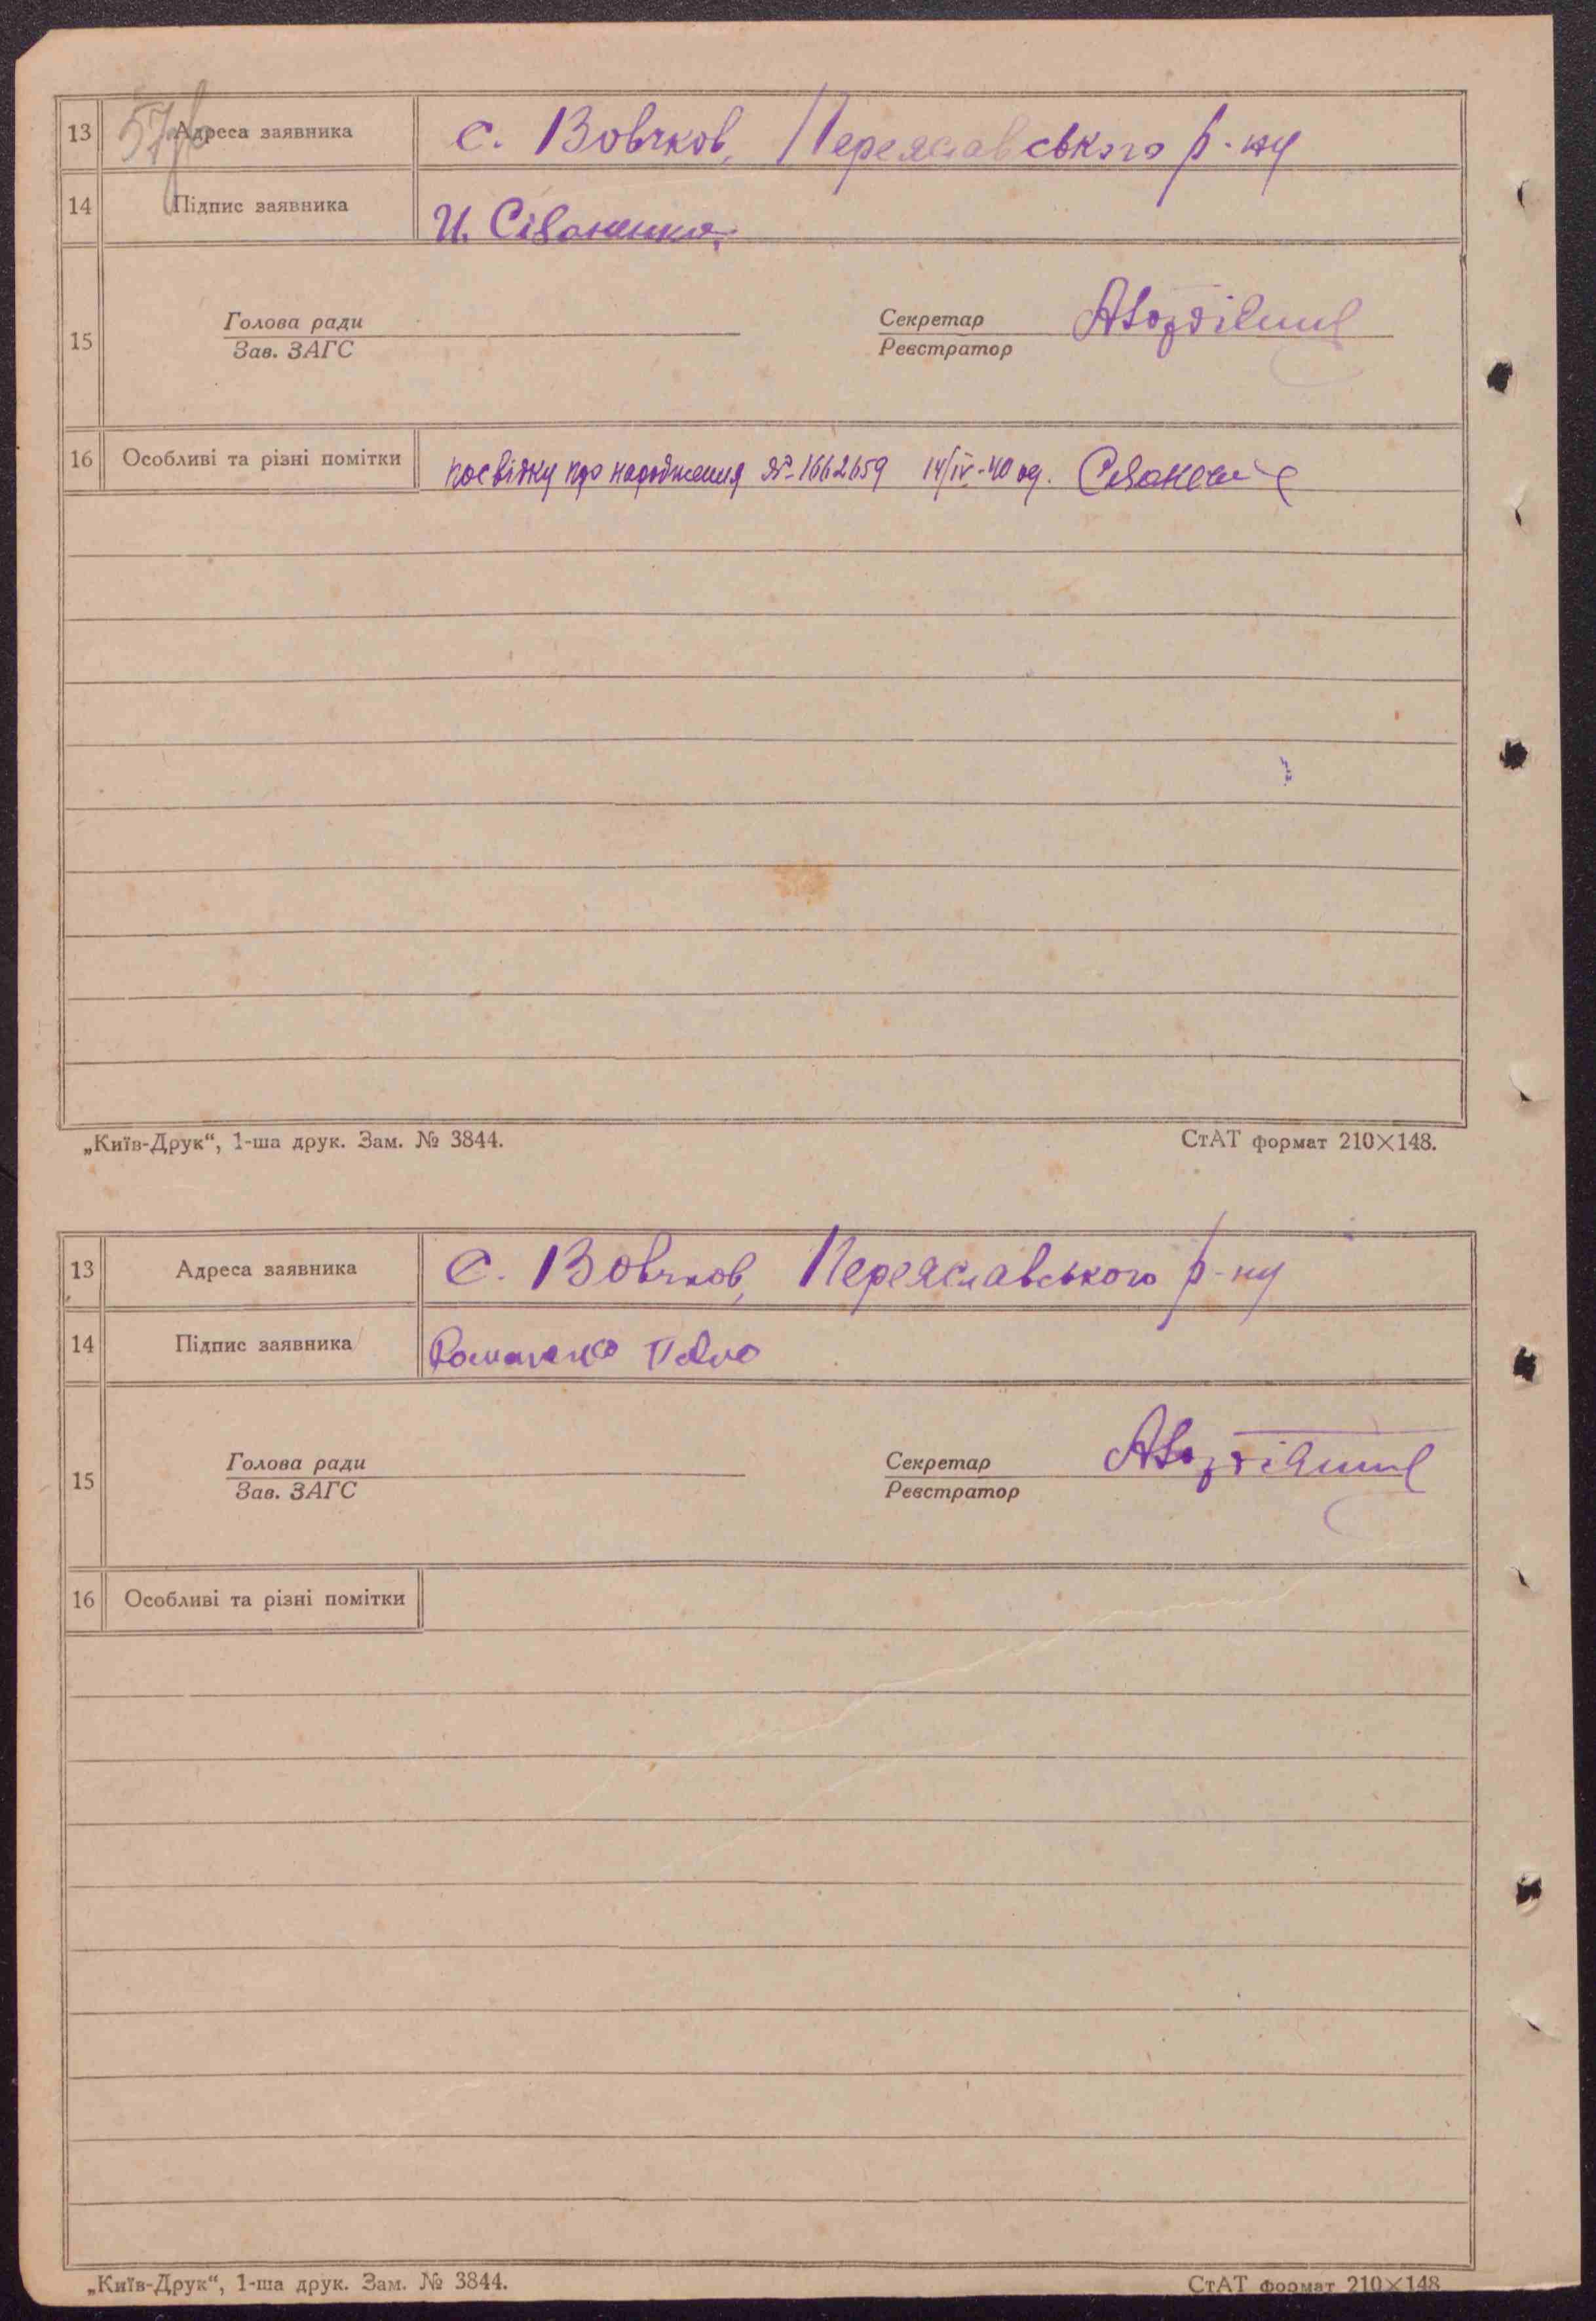 13 Адреса заявника с. Вовчков, Переяславського р-ну
14 Підпис заявника И. Сівоненко,
Голова ради Секретар
15
Зав. ЗАГС Реєстратор
16 Особливі та різні помітки посвідку про народження № 1662659 14/IV-40 р.
„Київ-Друк“, 1-ша друк. Зам. № 3844. СтАТ формат 210×148.
13 Адреса заявника с. Вовчков, Переяславського р-ну
14 Підпис заявника Романенко Павло
Голова ради Секретар
15
Зав. ЗАГС Реєстратор
16 Особливі та різні помітки
„Київ-Друк“, 1-ша друк. Зам. № 3844. СтАТ формат 210×148